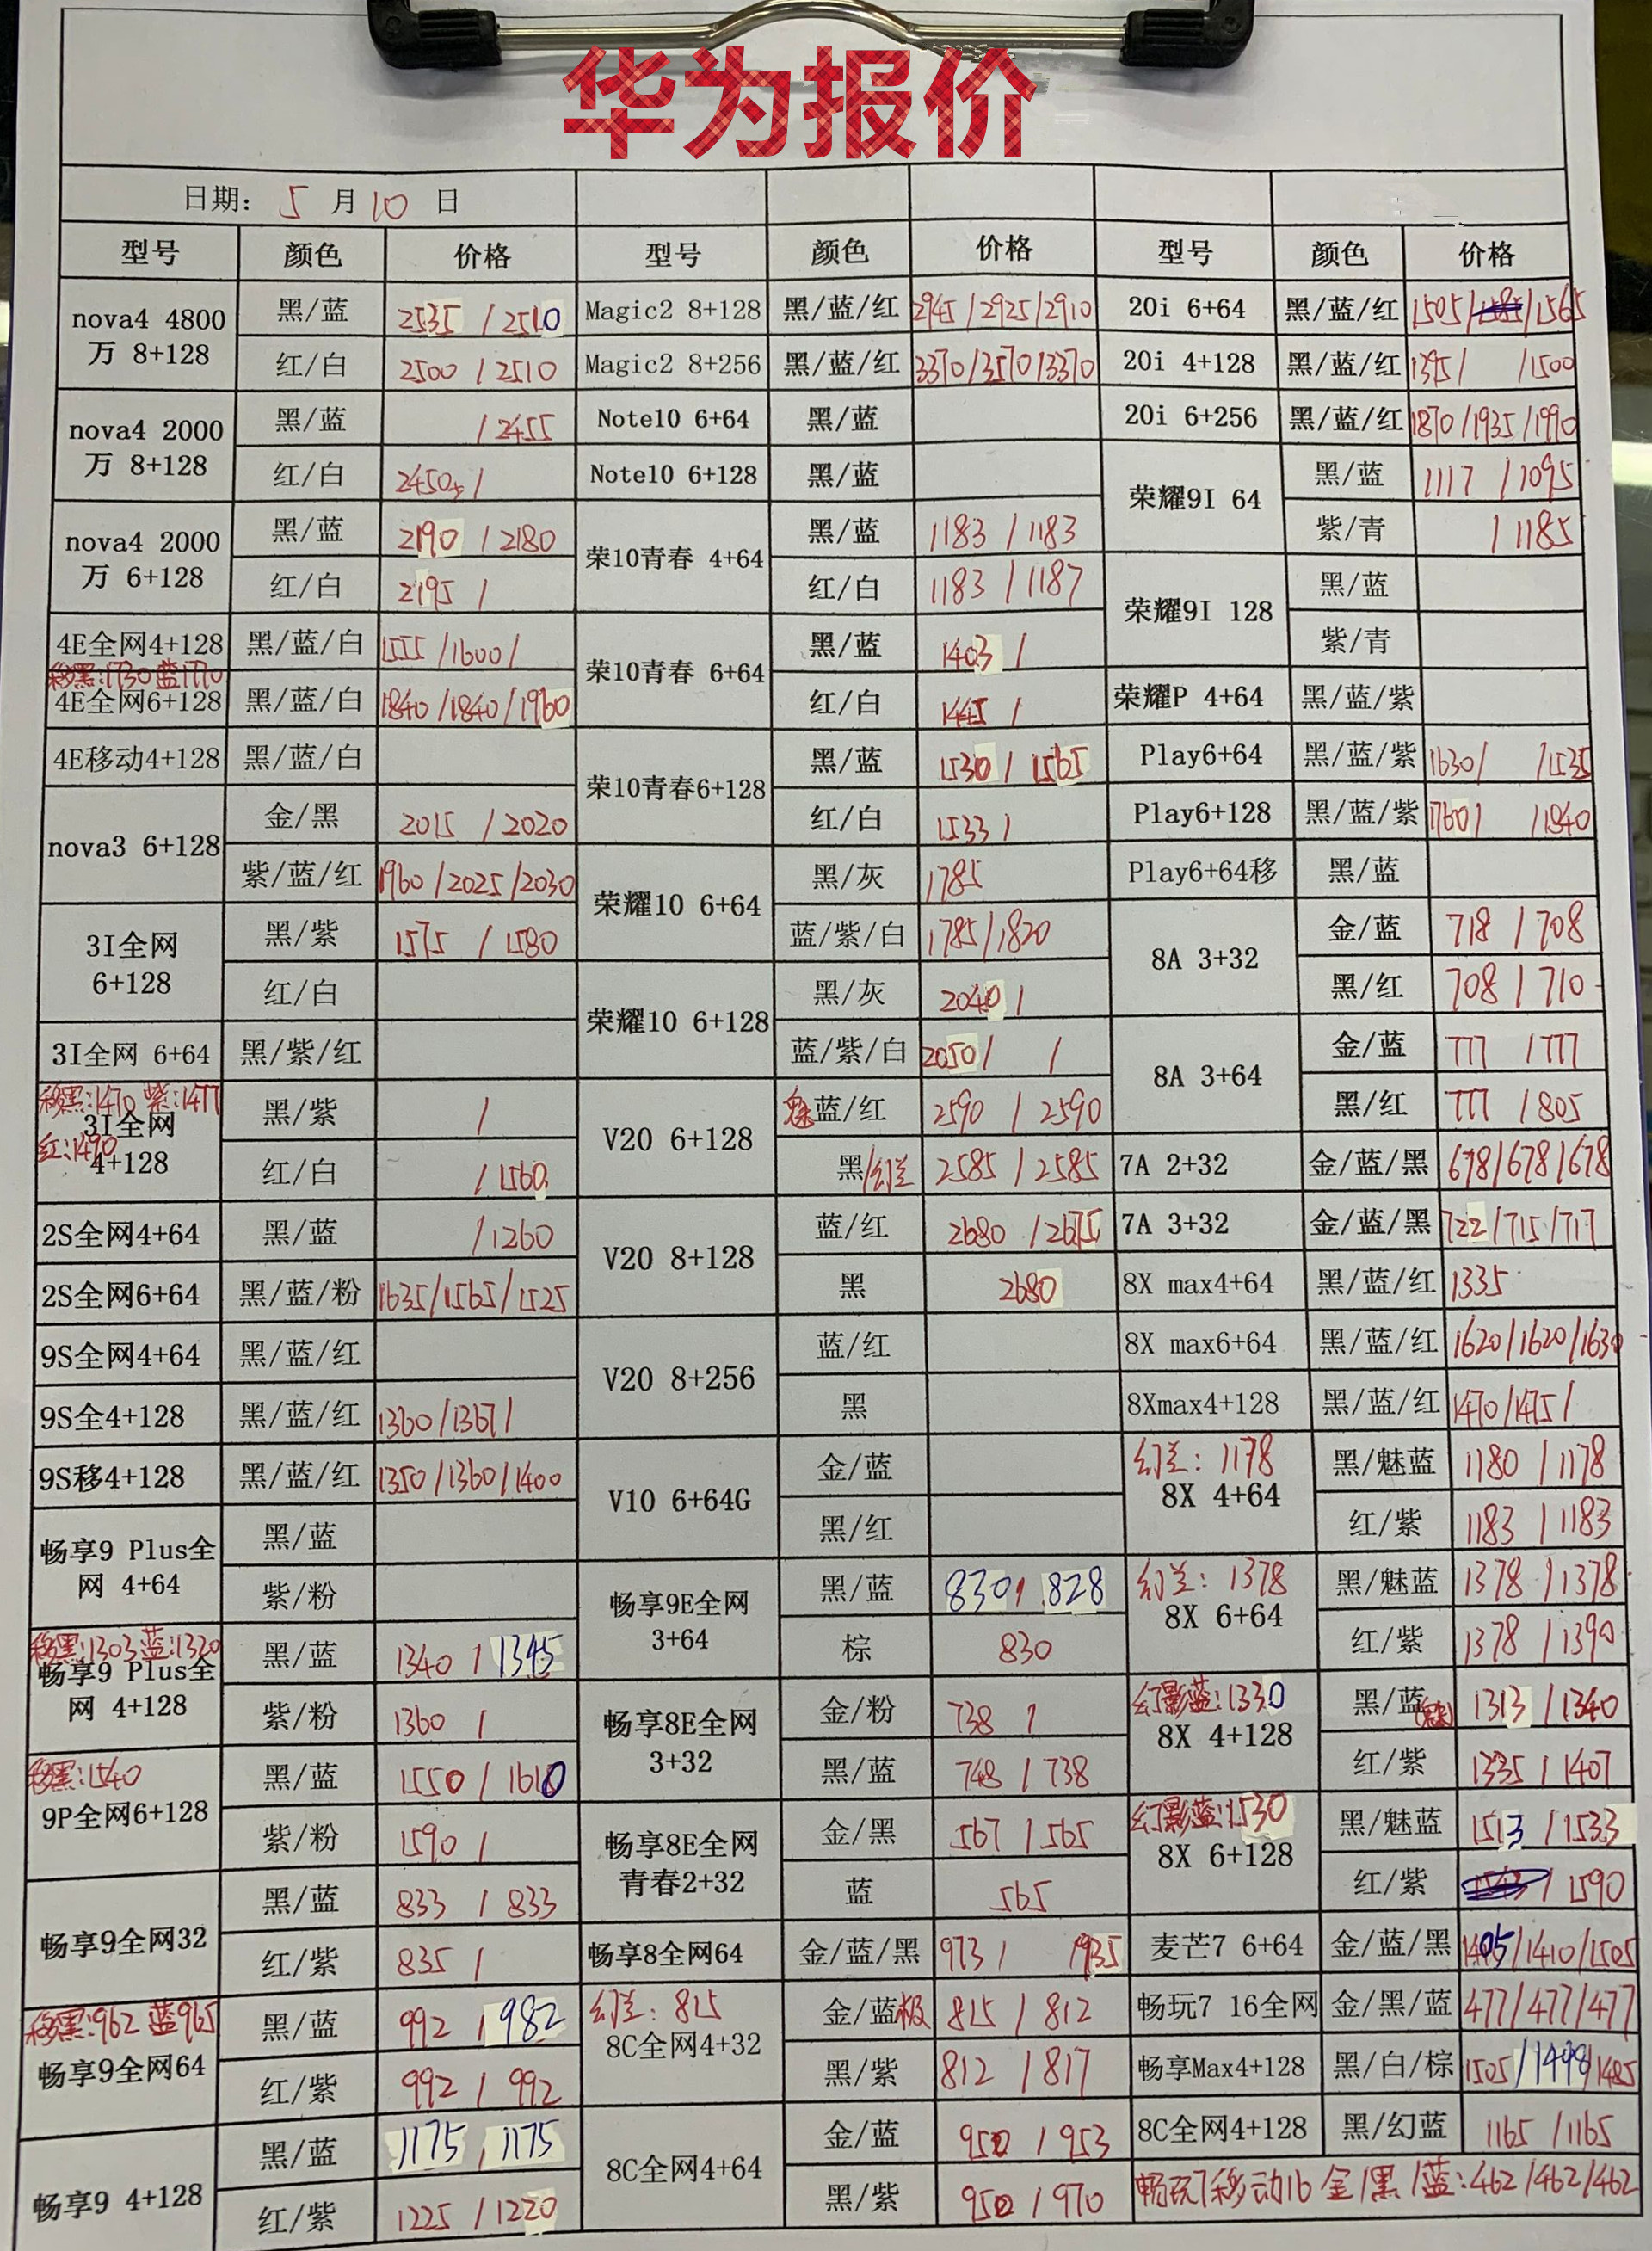 华为报价
日期： 5 月 10 日
型号 颜色 价格 型号 颜色 价格 型号 颜色 价格
nova4 4800万 8+128 黑/蓝 2535 / 2510
红/白 2500 / 2510
nova4 2000万 8+128 黑/蓝 / 2455
红/白 2450 /
nova4 2000万 6+128 黑/蓝 2190 / 2180
红/白 2195 /
4E全网4+128 黑/蓝/白 1555 /1600/
移黑:1730 蓝1770
4E全网6+128 黑/蓝/白 1840/1840/1960
4E移动4+128 黑/蓝/白
nova3 6+128 金/黑 2015 / 2020
紫/蓝/红 1960/2025/2030
3I全网 6+128 黑/紫 1575 / 1580
红/白
3I全网 6+64 黑/紫/红
移黑:1470 紫:1477
红:1490
3I全网 4+128 黑/紫 /
红/白 / 1560
2S全网4+64 黑/蓝 /1260
2S全网6+64 黑/蓝/粉 1635/1565/1525
9S全网4+64 黑/蓝/红
9S全4+128 黑/蓝/红 1360/1367/
9S移4+128 黑/蓝/红 1350/1360/1400
畅享9 Plus全网 4+64 黑/蓝
紫/粉
移黑:1303 蓝:1320
畅享9 Plus全网 4+128 黑/蓝 1340 / 1345
紫/粉 1360 /
移黑:1540
9P全网6+128 黑/蓝 1550 / 1610
紫/粉 1590 /
畅享9全网32 黑/蓝 833 / 833
红/紫 835 /
移黑:962 蓝965
畅享9全网64 黑/蓝 992 / 982
红/紫 992 / 992
畅享9 4+128 黑/蓝 1175 , 1175
红/紫 1225 / 1220
Magic2 8+128 黑/蓝/红 2945/2925/2910
Magic2 8+256 黑/蓝/红 3370/3570/3370
Note10 6+64 黑/蓝
Note10 6+128 黑/蓝
荣10青春 4+64 黑/蓝 1183 / 1183
红/白 1183 / 1187
荣10青春 6+64 黑/蓝 1403 /
红/白 1445 /
荣10青春6+128 黑/蓝 1530 / 1565
红/白 1533 /
荣耀10 6+64 黑/灰 1785
蓝/紫/白 1785/1820
荣耀10 6+128 黑/灰 2040 /
蓝/紫/白 2050/ /
V20 6+128 魅蓝/红 2590 / 2590
黑/幻兰 2585 / 2585
V20 8+128 蓝/红 2680 / 2675
黑 2680
V20 8+256 蓝/红
黑
V10 6+64G 金/蓝
黑/红
畅享9E全网 3+64 黑/蓝 830 , 828
棕 830
畅享8E全网 3+32 金/粉 738 /
黑/蓝 748 / 738
畅享8E全网青春2+32 金/黑 567 / 565
蓝 565
畅享8全网64 金/蓝/黑 973 / 1935
幻兰: 815
8C全网4+32 金/蓝极 815 / 812
黑/紫 812 / 817
8C全网4+64 金/蓝 950 / 953
黑/紫 950 / 970
20i 6+64 黑/蓝/红 1505/1585/1565
20i 4+128 黑/蓝/红 1395/ /1500
20i 6+256 黑/蓝/红 1870/1935/1990
荣耀9I 64 黑/蓝 1117 / 1095
紫/青 / 1185
荣耀9I 128 黑/蓝
紫/青
荣耀P 4+64 黑/蓝/紫
Play6+64 黑/蓝/紫 1630/ /1535
Play6+128 黑/蓝/紫 1760/ /1840
Play6+64移 黑/蓝
8A 3+32 金/蓝 718 / 708
黑/红 708 / 710
8A 3+64 金/蓝 777 / 777
黑/红 777 / 805
7A 2+32 金/蓝/黑 678/678/678
7A 3+32 金/蓝/黑 722/715/717
8X max4+64 黑/蓝/红 1335
8X max6+64 黑/蓝/红 1620/1620/1630
8Xmax4+128 黑/蓝/红 1470/1475/
幻兰: 1178
8X 4+64 黑/魅蓝 1180 / 1178
红/紫 1183 / 1183
幻兰: 1378
8X 6+64 黑/魅蓝 1378 / 1378
红/紫 1378 / 1390
幻影蓝:1330
8X 4+128 黑/蓝 1313 / 1340
红/紫 1335 / 1407
幻影蓝:1530
8X 6+128 黑/魅蓝 1513 / 1533
红/紫 / 1590
麦芒7 6+64 金/蓝/黑 1405/1410/1505
畅玩7 16全网 金/黑/蓝 477/477/477
畅享Max4+128 黑/白/棕 1505/1498/1485
8C全网4+128 黑/幻蓝 1165 /1165
畅玩7移动16 金/黑/蓝:462/462/462